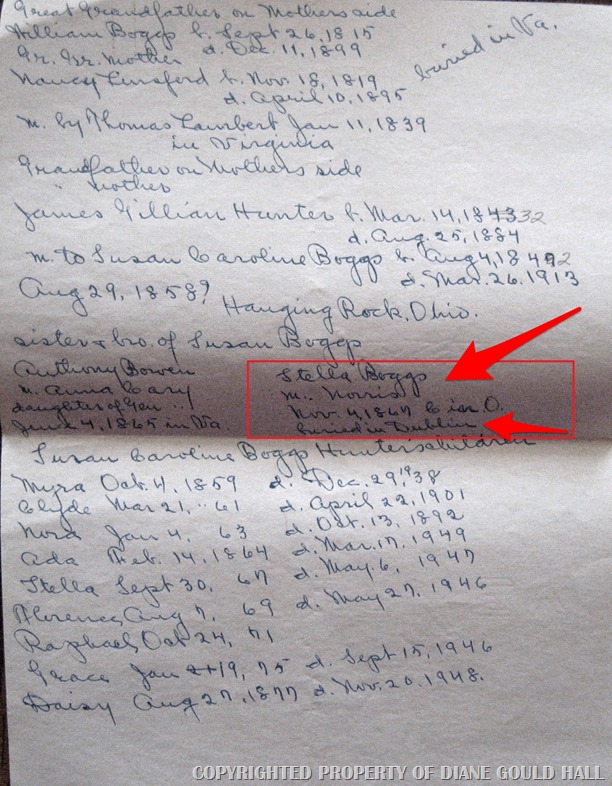 Great Grandfather on Mothers side
William Boggs b. Sept 26, 1815
d. Dec. 11, 1899
Gr. Gr. Mother
buried in Va.
Nancy Lunsford b. Nov. 18, 1819
d. April 10, 1895
m. by Thomas Lambert Jan 11, 1839
in Virginia
Grandfather on Mothers side
" mother
James Gillian Hunter b. Mar. 14, 1843 32
d. Aug 25, 1884
m. to Susan Caroline Boggs b. Aug 4, 1842
d. Mar. 26, 1913
Aug 29, 1858?
Hanging Rock, Ohio.
sister & bro. of Susan Boggs
Anthony Bowen
m. Anna Cary
daughter of Gen
June 4, 1865 in Va.
Stella Boggs
m. Norris
Nov. 4, 1867 in O.
buried in Dublin
Susan Caroline Boggs Hunters children
Myra Oct. 4, 1859 d. Dec. 29, 1938
Clyde Mar 21, " 61 d. April 22, 1901
Nora Jan 4, 63 d. Oct. 13, 1892
Ada Feb. 14, 1864 d. Mar. 17, 1949
Stella Sept 30, 67 d. May 6, 1947
Florence Aug 7, 69 d. May 27, 1946
Raphael Oct 24, 71
Grace Jan 19, 75 d. Sept 15, 1946
Daisy Aug 27, 1877 d. Nov. 20, 1948.
COPYRIGHTED PROPERTY OF DIANE GOULD HALL